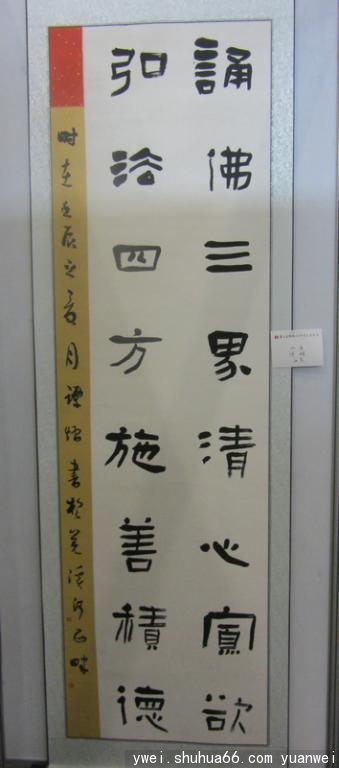 誦佛三界清心寡欲
弘法四方施善積德
时在壬辰之夏月譚書於溪河畔
ywei.shuhua66.com yuanwei